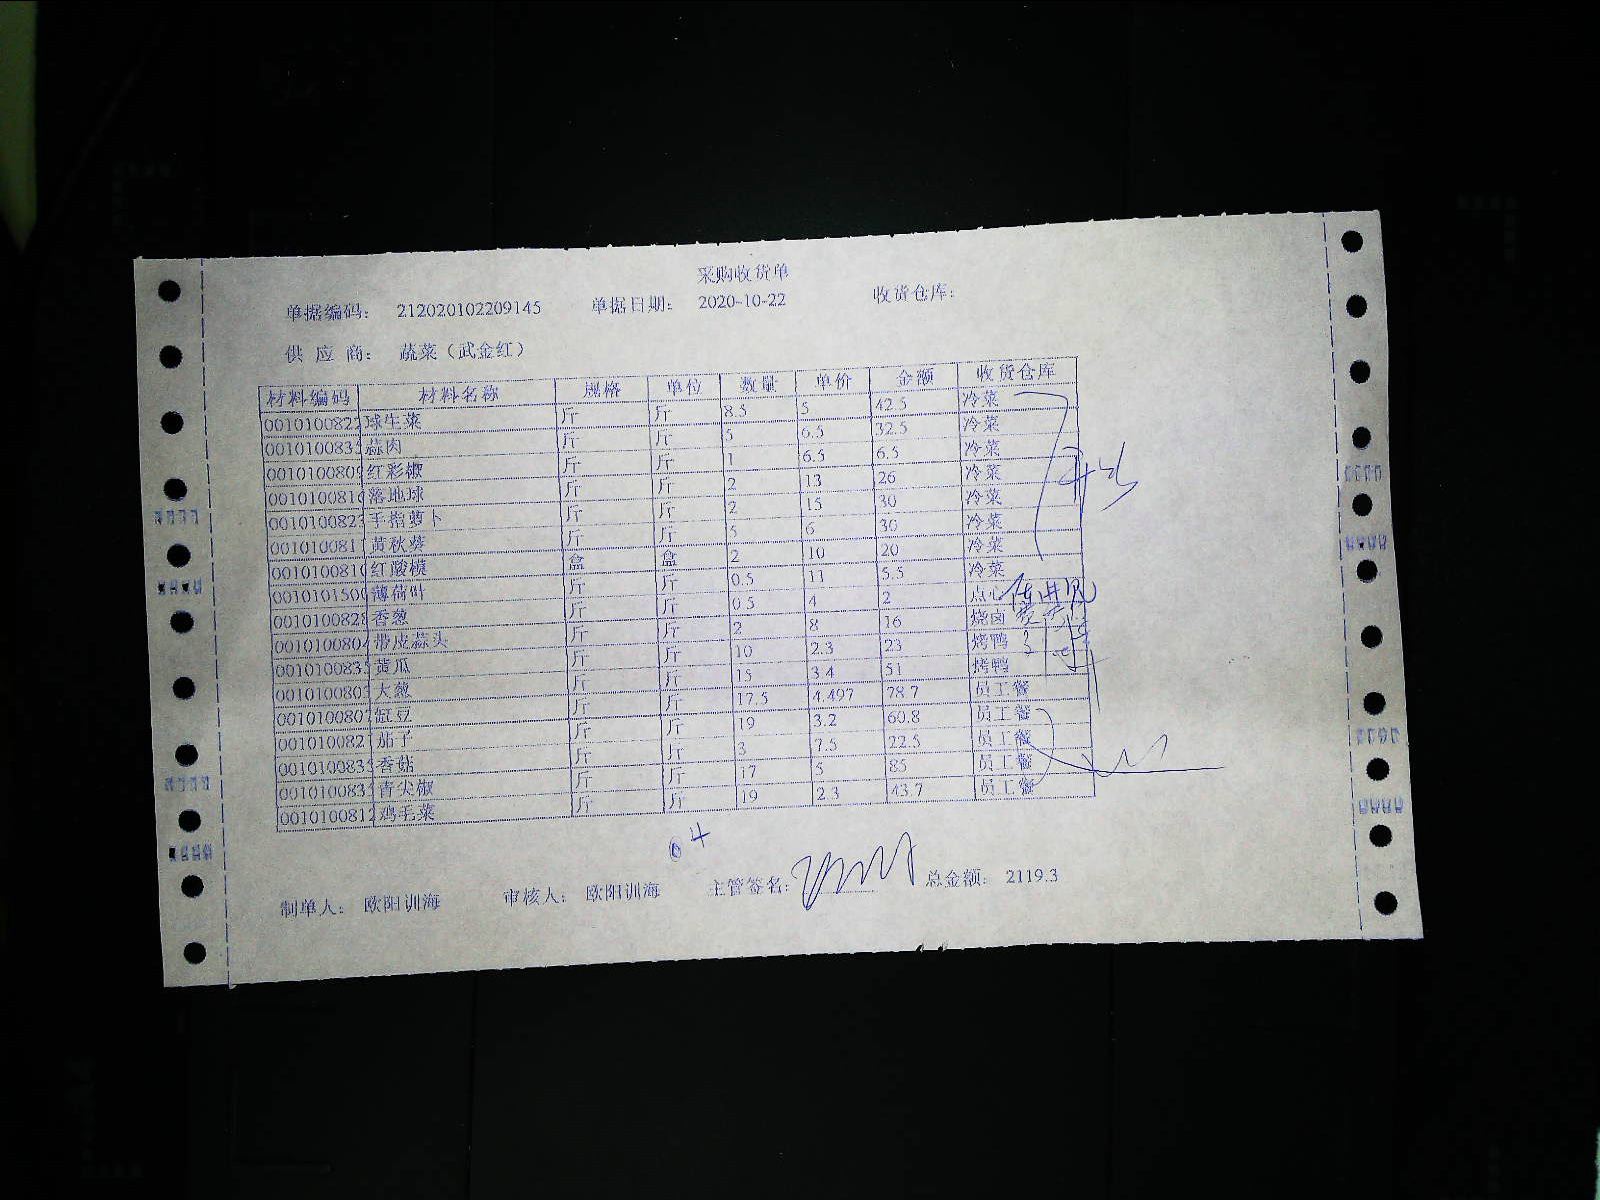 采购收货单
单据编码： 212020102209145 单据日期： 2020-10-22 收货仓库：
供 应 商： 蔬菜（武金红）
材料编码 材料名称 规格 单位 数量 单价 金额 收货仓库
0010100822 球生菜 斤 斤 8.5 5 42.5 冷菜
001010083 蒜肉 斤 斤 5 6.5 32.5 冷菜
001010080 红彩椒 斤 斤 1 6.5 6.5 冷菜
001010081 落地球 斤 斤 2 13 26 冷菜
001010082 手指萝卜 斤 斤 2 15 30 冷菜
001010081 黄秋葵 斤 斤 5 6 30 冷菜
001010081 红酸模 盒 盒 2 10 20 冷菜
001010150 薄荷叶 斤 斤 0.5 11 5.5 冷菜
001010082 香葱 斤 斤 0.5 4 2 点心
001010080 带皮蒜头 斤 斤 2 8 16 烧卤
001010083 黄瓜 斤 斤 10 2.3 23 烤鸭
001010080 大葱 斤 斤 15 3.4 51 烤鸭
001010080 豇豆 斤 斤 17.5 4.497 78.7 员工餐
001010082 茄子 斤 斤 19 3.2 60.8 员工餐
001010083 香菇 斤 斤 3 7.5 22.5 员工餐
001010083 青尖椒 斤 斤 17 5 85 员工餐
001010081 鸡毛菜 斤 斤 19 2.3 43.7 员工餐
制单人： 欧阳训海 审核人： 欧阳训海 主管签名： 总金额： 2119.3